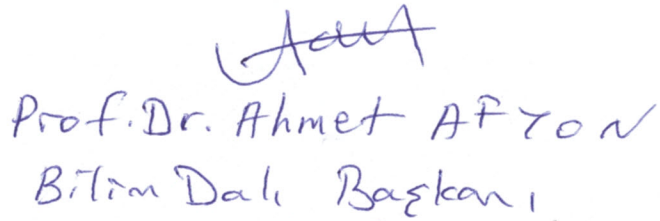 Prof. Dr. Ahmet AFYON
Bilim Dalı Başkanı